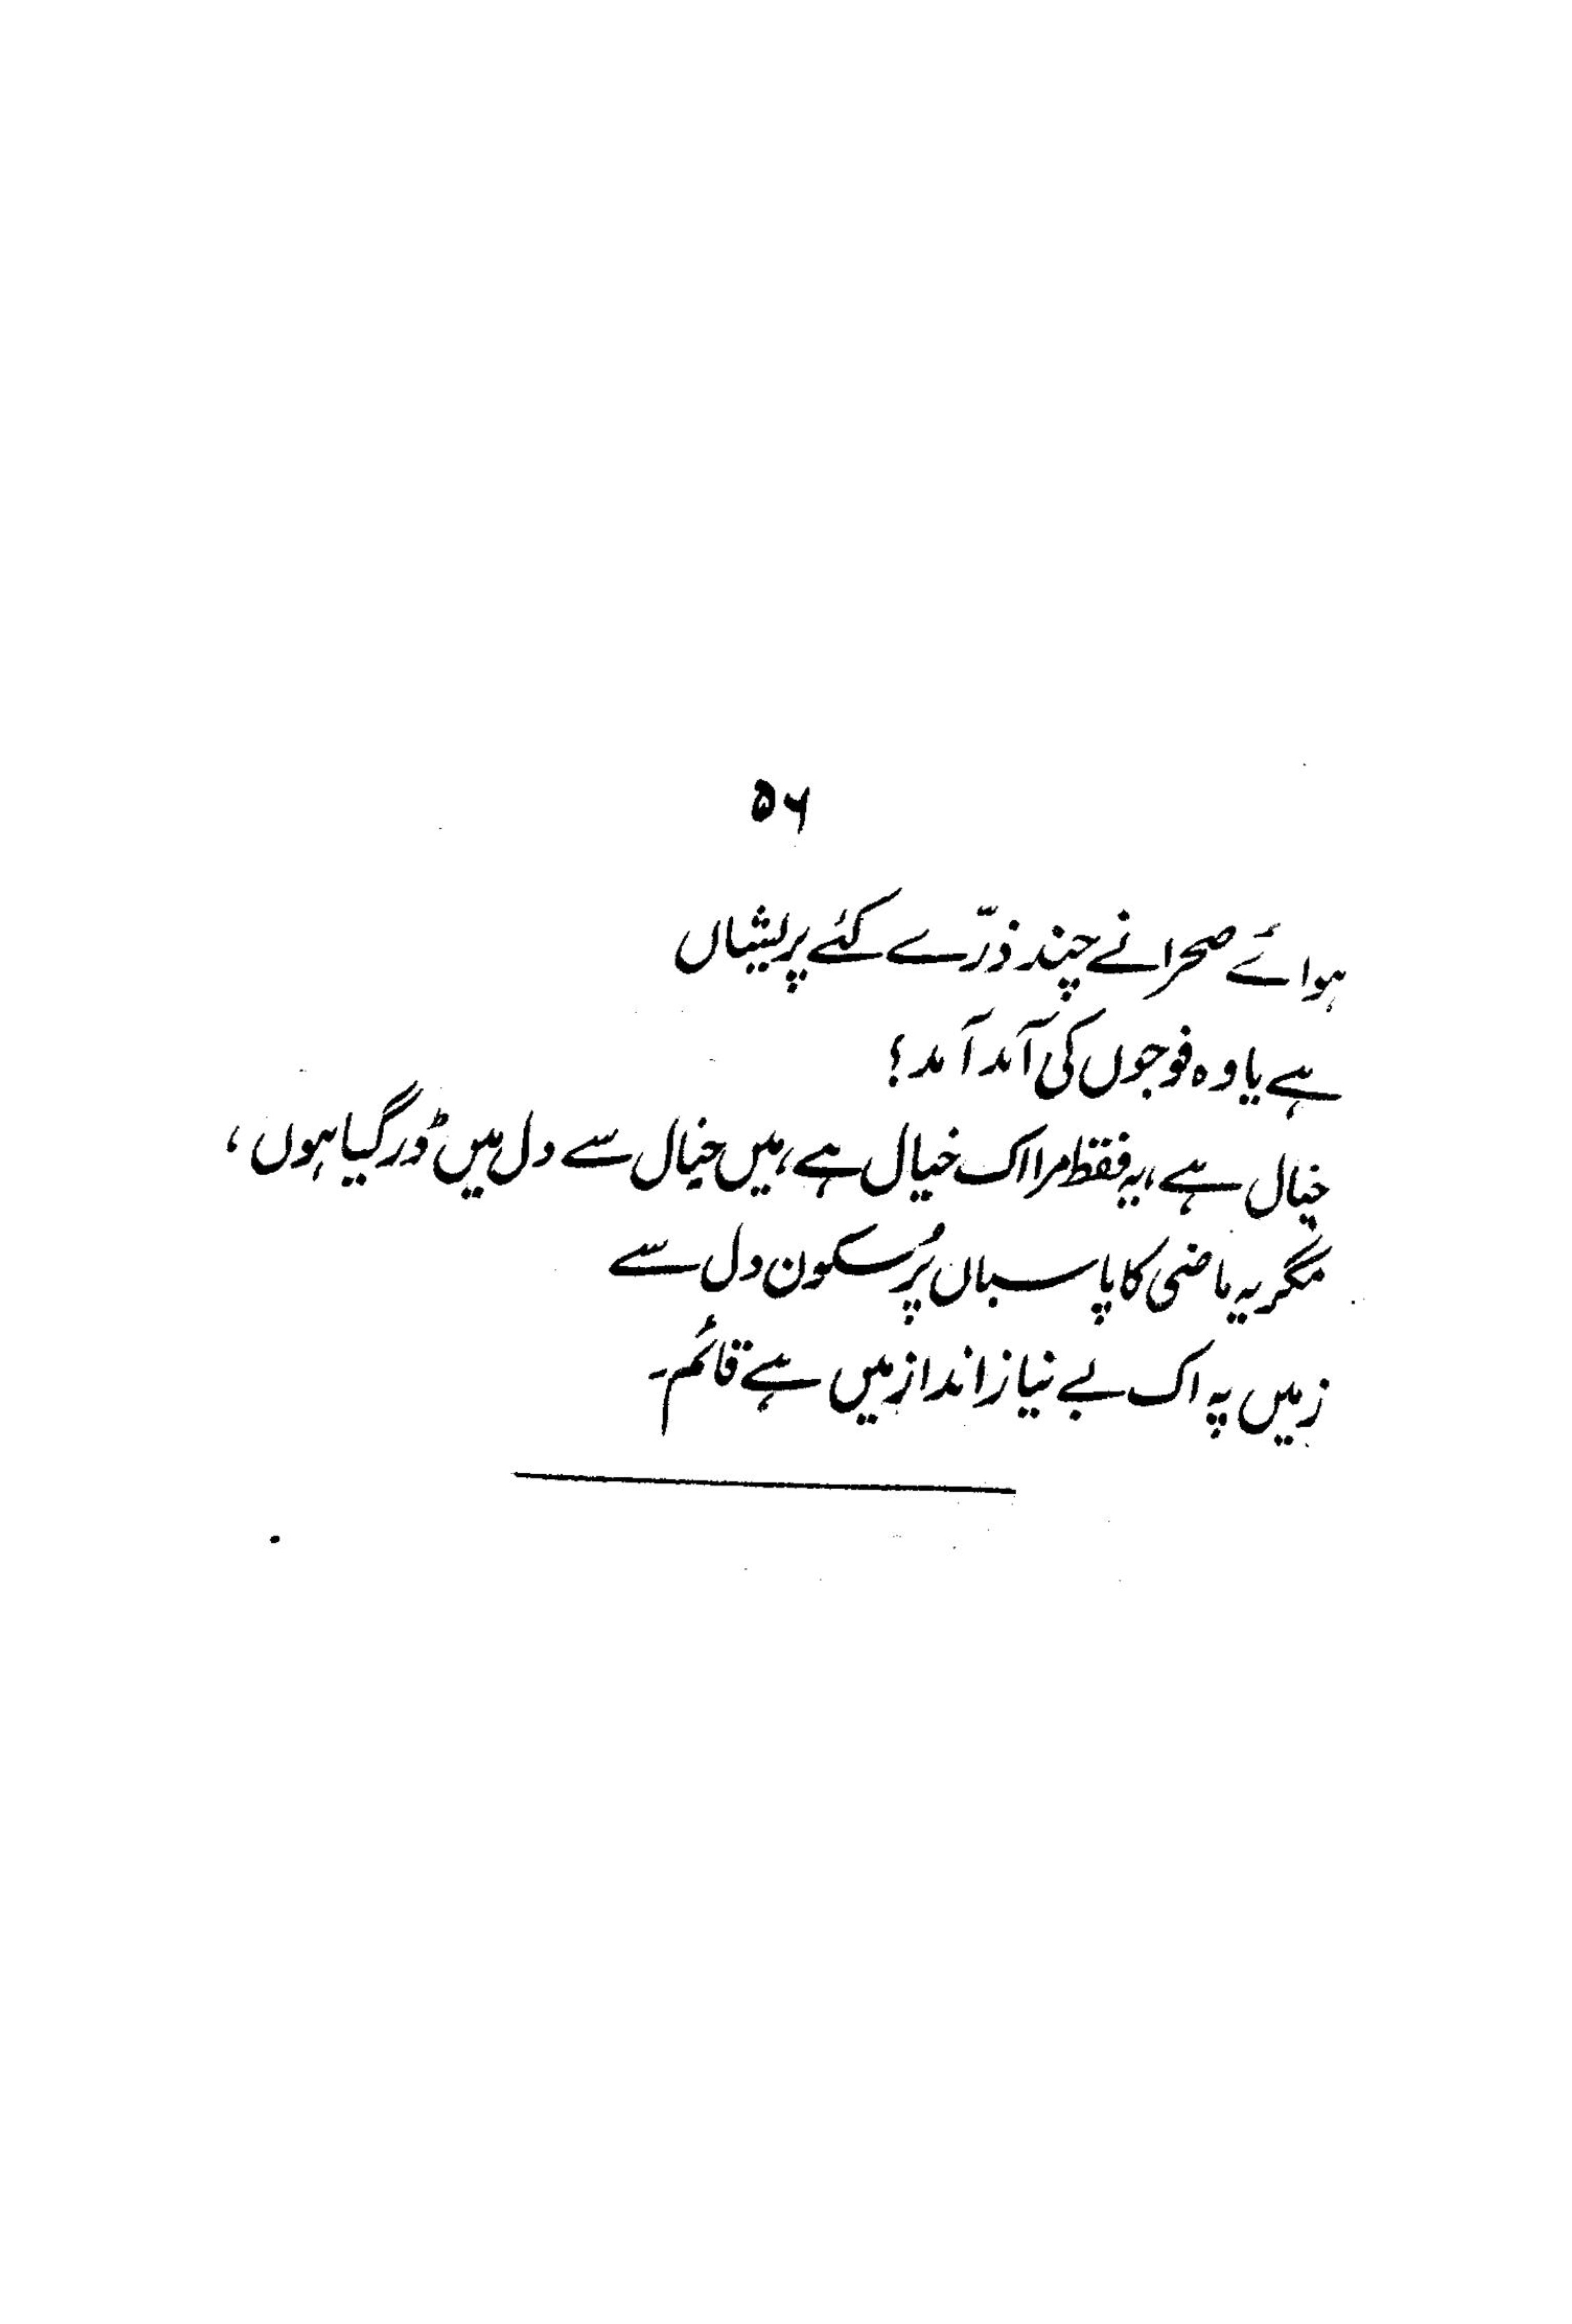 ۵۶
ہوائے صحرا نے چند ذرّے کئے پریشاں
ہے یا وہ فوجوں کی آمد آمد؟
خیال ہے، یہ فقط مرا اک خیال ہے، میں خیال سے دل میں ڈر گیا ہوں،
مگر یہ ماضی کا پاسباں پُرسکون دل سے
زمیں پہ اک بے نیاز انداز میں ہے قائم۔